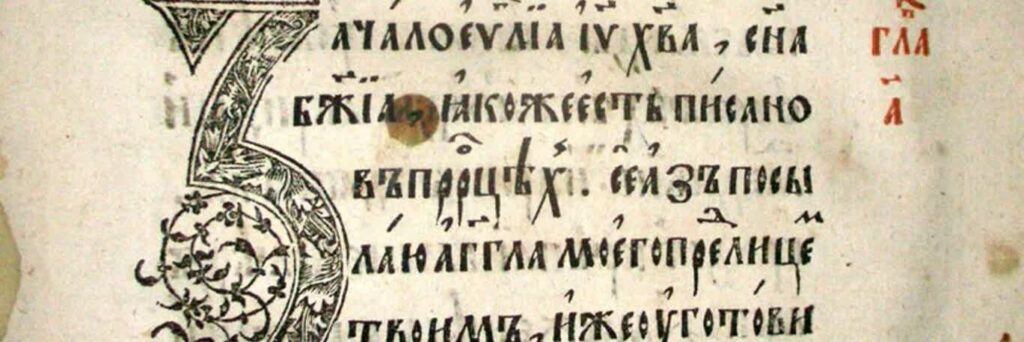 Зачалоеѵⷢ҇лїа і҆у҃ хв҃а, сн҃а
бж҃їа, ꙗ҆кожеестьписано
въпрⷪ҇рцѣхⸯ. сеа҆зъпосы
лаюа҆гг҃ламоегопреⷣлицеⷨ
твоимъ, и҆жеоуготови
гл҃а
а҃